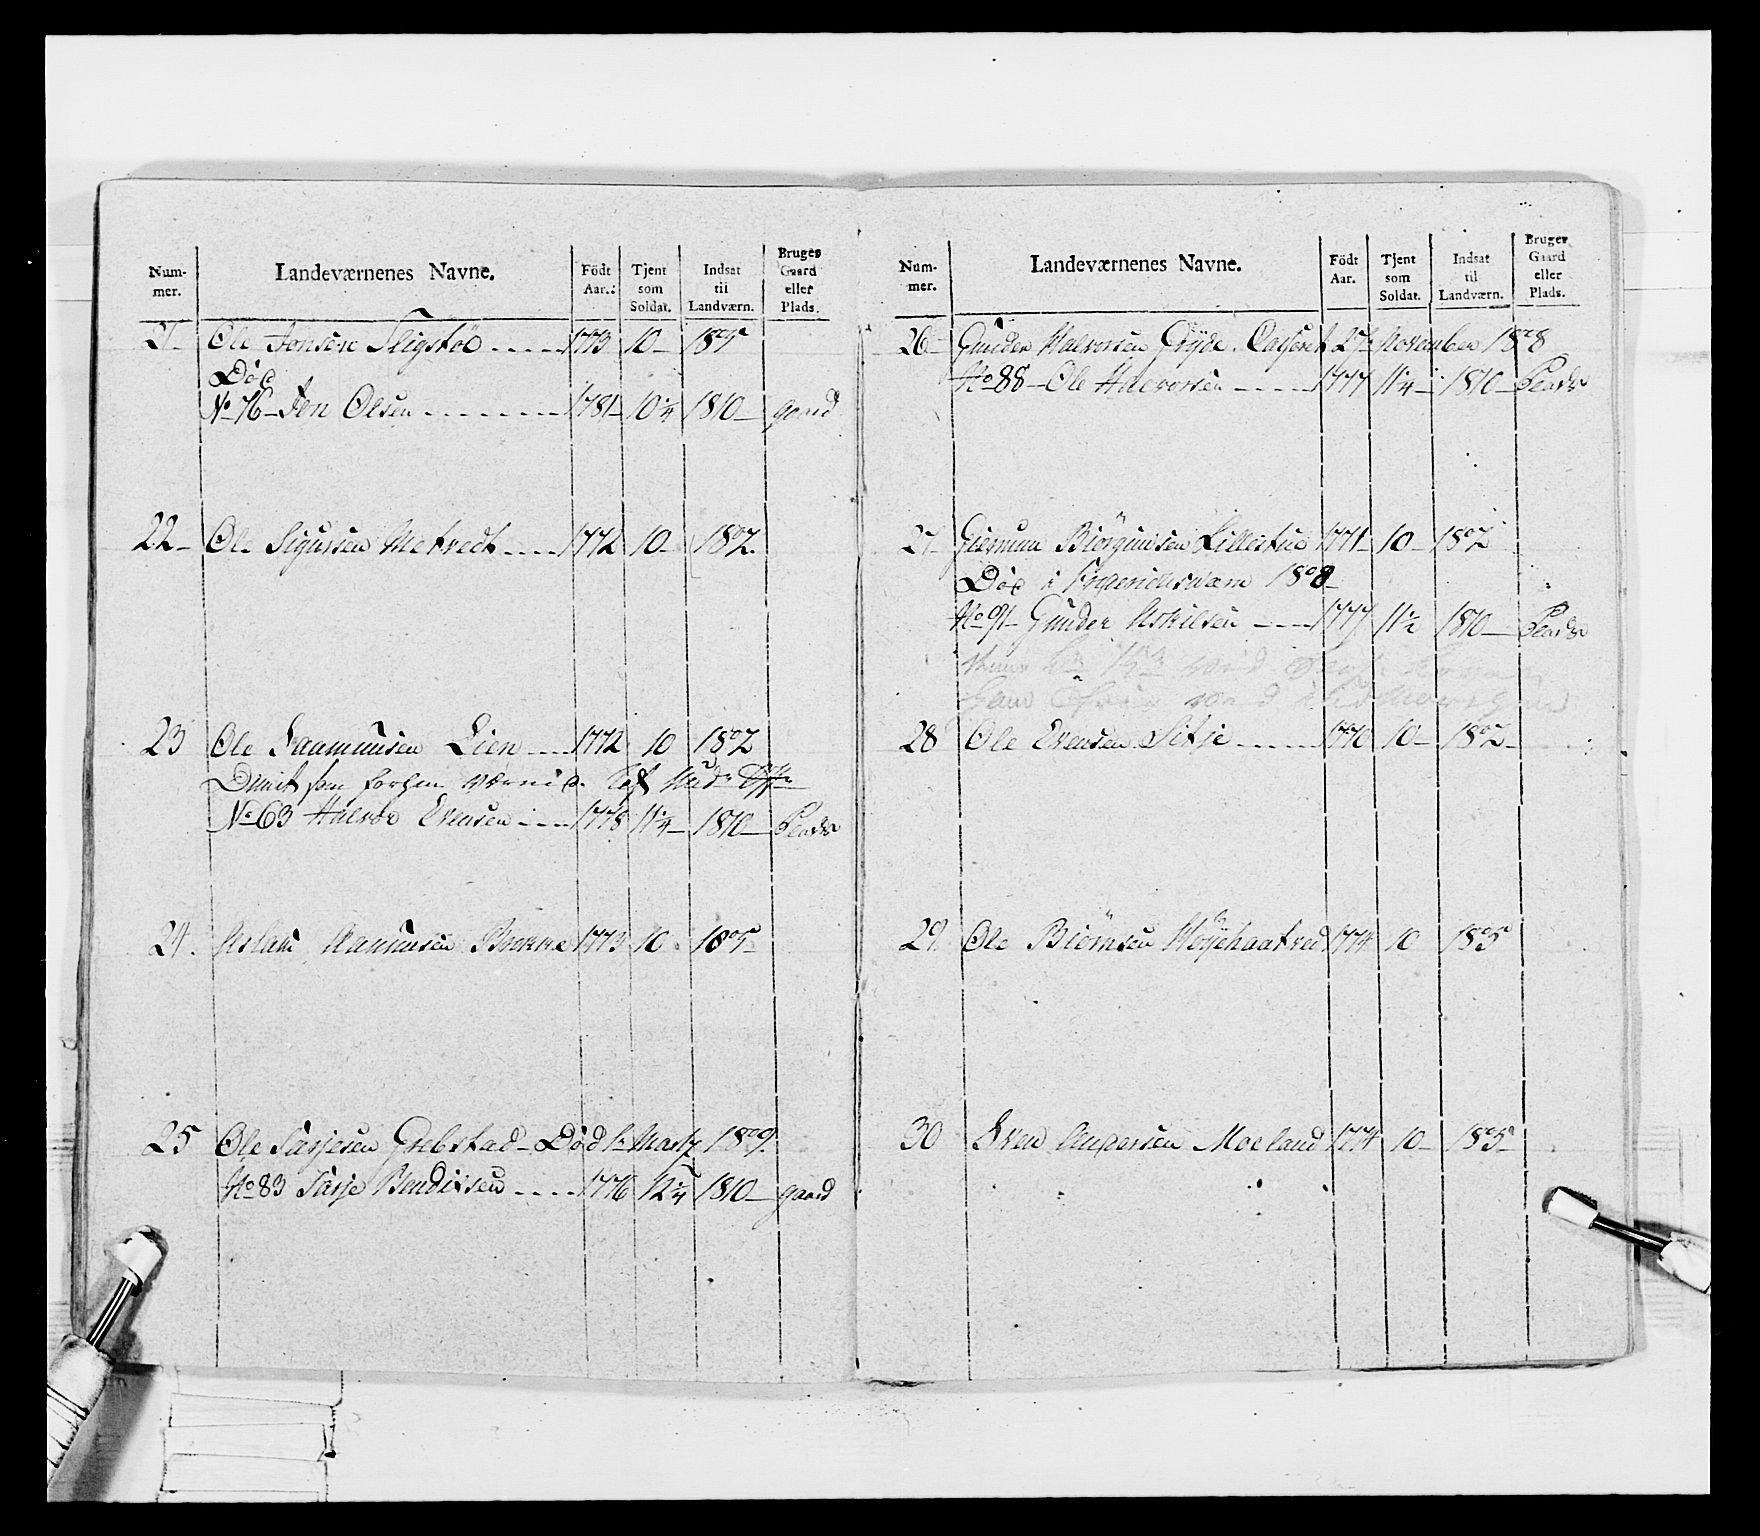 Num-mer. Landeværnenes Navne. Födt Aar. Tjent som Soldat. Indsat til Landværn. Bruger Gaard eller Plads.
21 Ole Jonsen 1773 10 1805
Död
No 76 Jon Olsen 1781 10 1/4 1810 gaard
22 Ole Sigursen Metvedt 1772 10 1802
23 Ole Aamunsen Lien 1772 10 1802
Dimit som
No 63 Halvor Evensen 1778 11 1/4 1810 Plads
24. Aslak 1773 10 1805
25 Ole Tarjesen Grebstad Död Martz 1809.
No 83 Tarje Bendixsen 1776 12 1/4 1810 gaard
Num-mer. Landeværnenes Navne. Födt Aar. Tjent som Soldat. Indsat til Landværn. Bruger Gaard eller Plads.
26 Gunder Halvorsen Casseret 27 November 1808
No 88 Ole Halvorsen 1777 11 1/4 1810 Plads
27 Biörgunsen Lillestue 1771 10 1802
Död i Frideriksværn 1808
No 91 Gunder Askilsen 1777 11 1/2 1810 Plads
28 Ole Evensen 1770 10 1802
29 Ole Biörnsen 1774 10 1805
30 Even Andersen Moeland 1774 10 1805